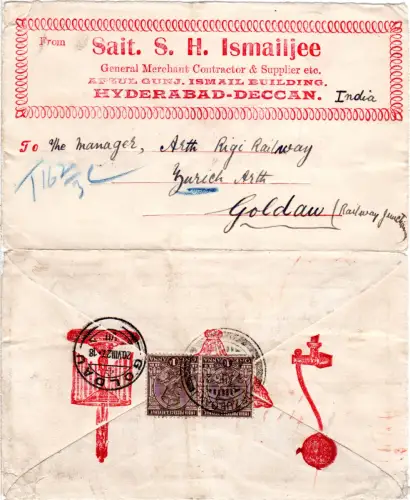 From
Sait. S. H. Ismailjee
General Merchant Contractor & Supplier etc.
AFZUL GUNJ, ISMAIL BUILDING.
HYDERABAD-DECCAN.
India
To The Manager, Arth Rigi Railway
Zurich Arth
Goldau (Railway Junction)
GOLDAU